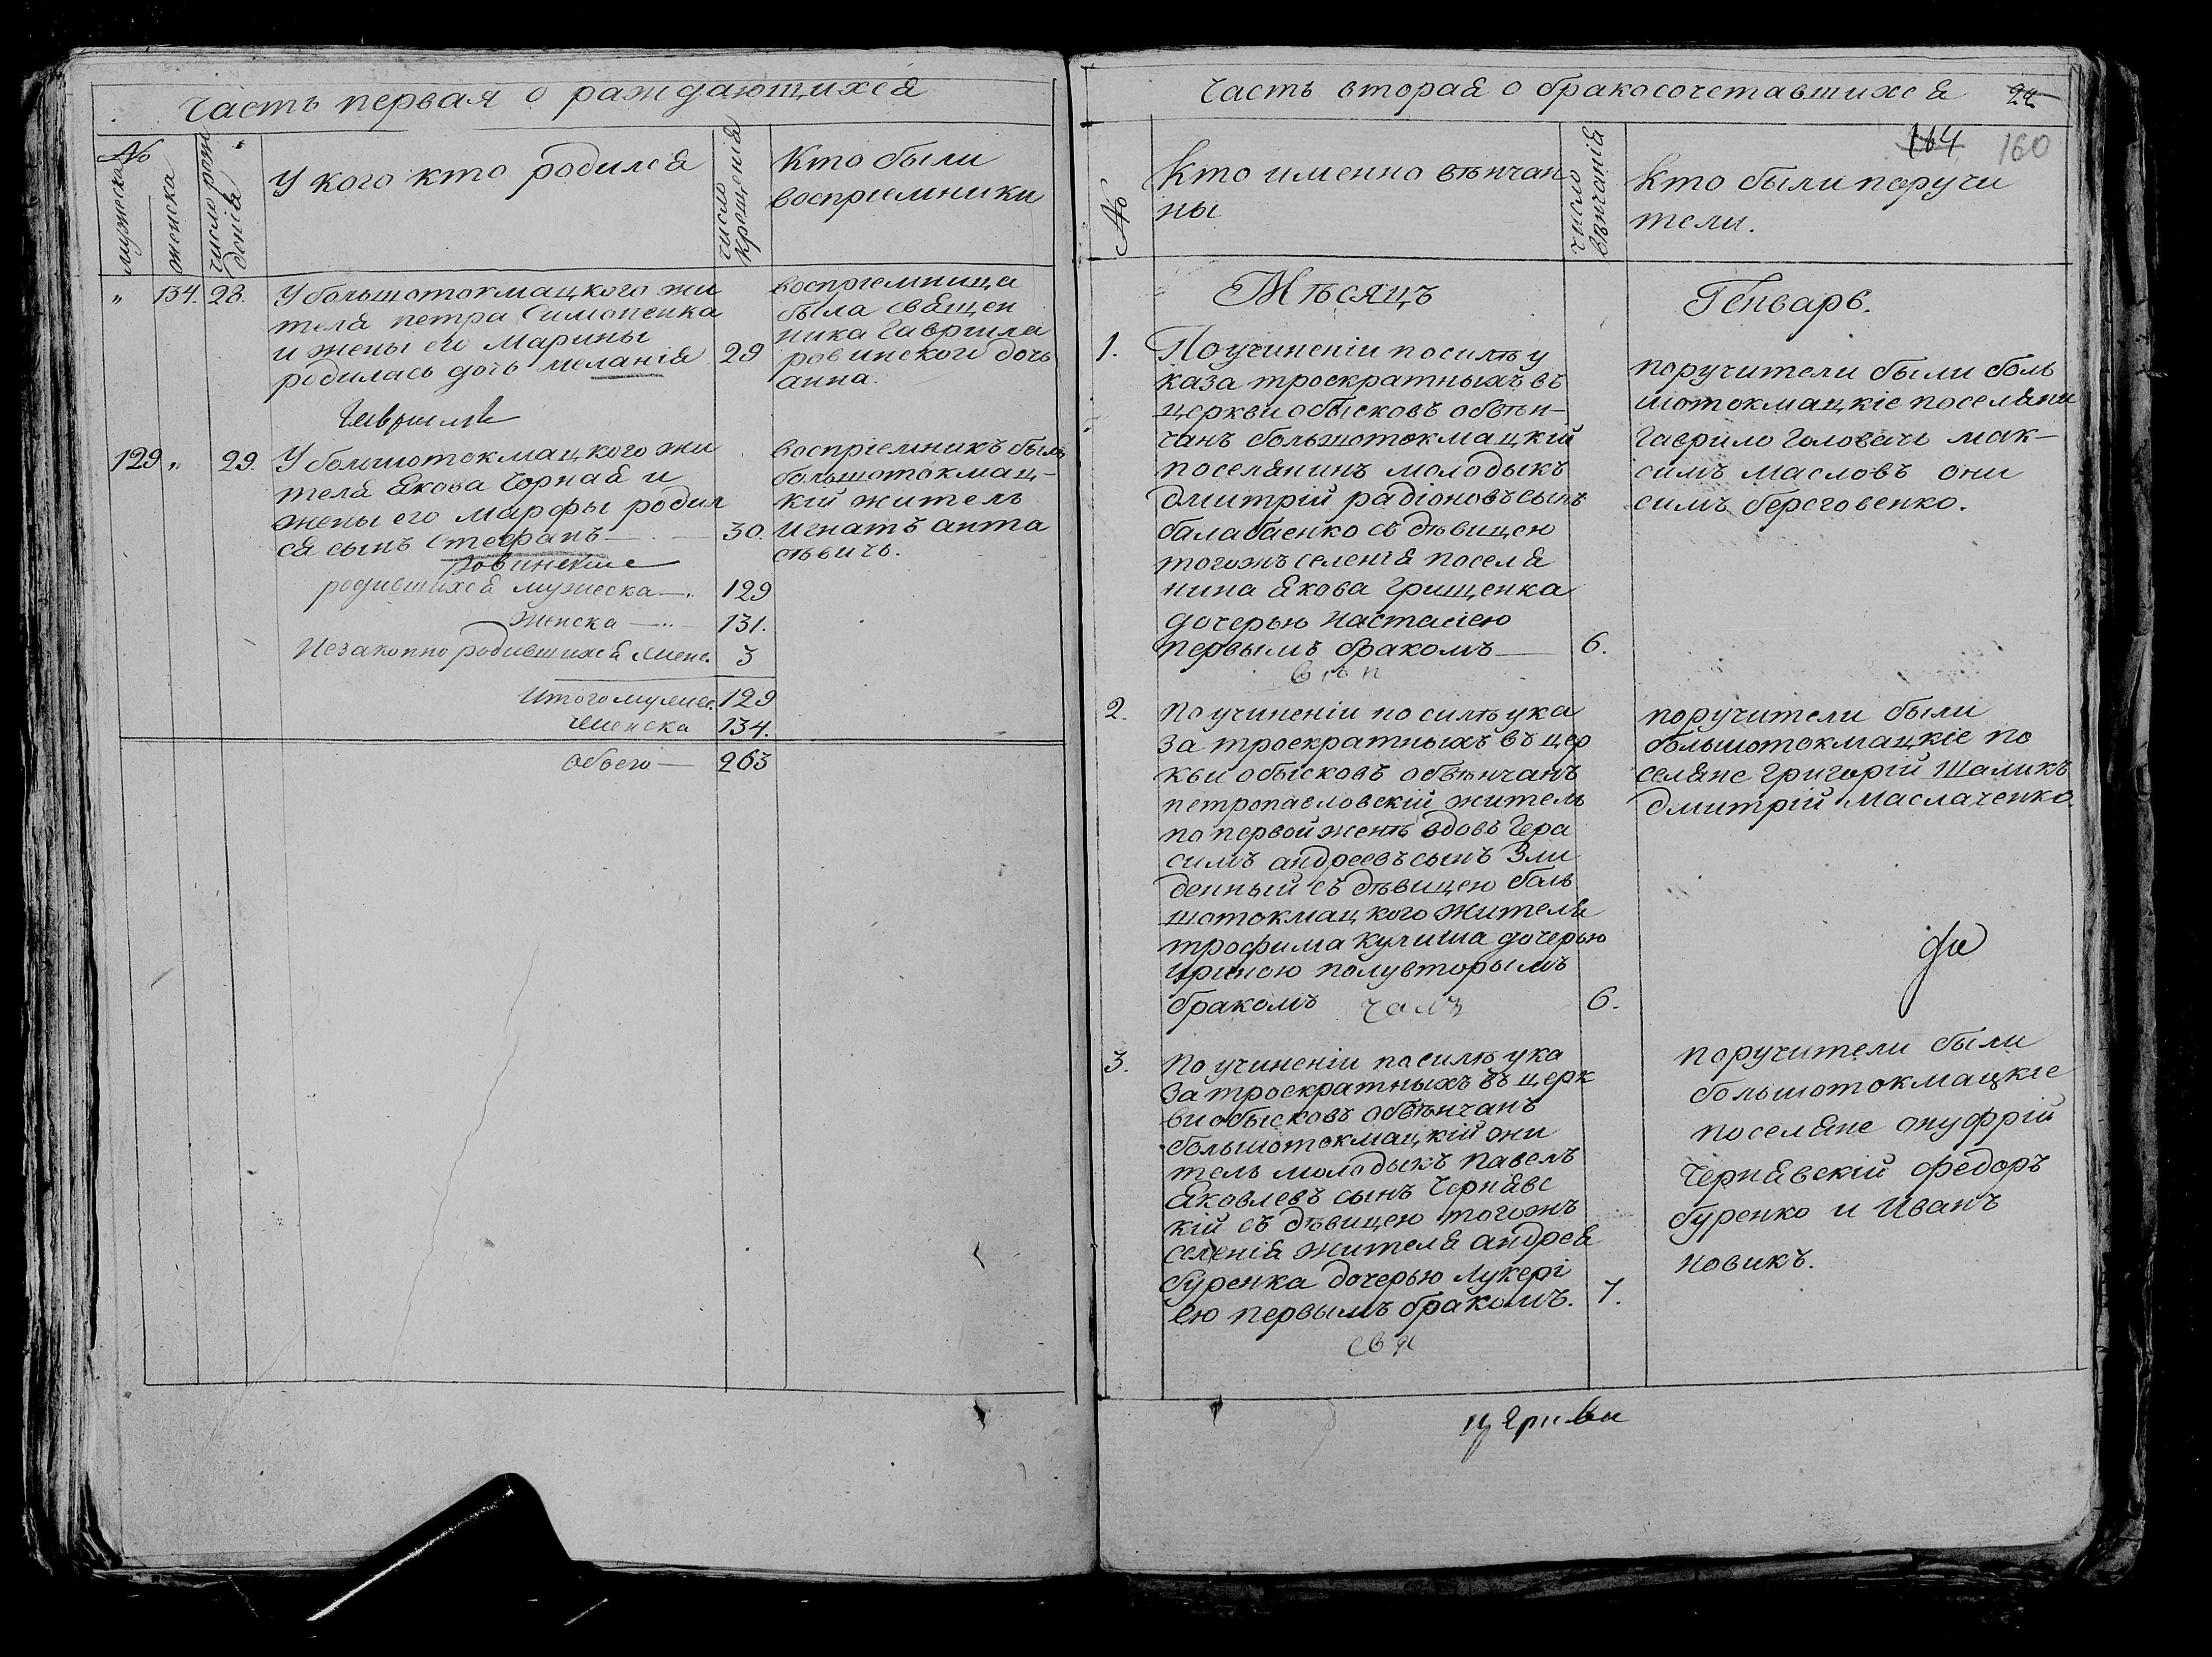 Часть первая о раждающихся
№
мужеска
женска
число рож
денія
У кого кто родился
число
крещенія
Кто были
восприемники
" 134. 28. У большотокмацкого жи
теля петра Симоненка
и жены его Марины
родилась дочь меланія 29
восприемница
была священ
ника Гавриила
ровинской дочь
анна.
Гавриилъ
129 " 29. У большотокмацкого жи
теля Якова Чорная и
жены его марфы родил
ся сынъ Стефанъ — 30.
восприемникъ былъ
большотокмац-
кій житель
Игнатъ анта
сѣвичъ.
Ровинскіе
родившихся мужеска — 129
женска — 131.
Незаконно родившихся женс. 3
Итого мужес. 129
женска 134.
обоего — 263
Часть вторая о бракосочетавшихся 24
164 160
№
Кто именно вѣнчан
ны
число
вѣнчанія
Кто были поручи
тели.
Мѣсяцъ Генварь.
1. По учиненіи по силѣ у
каза троекратныхъ въ
церкви обысковъ обвѣн-
чанъ большотокмацкій
поселянинъ молодыкъ
дмитрій радіоновъ сынъ
балабаенко съ дѣвицею
тогожъ селенія поселя
нина Якова Грищенка
дочерью Настасіею
первымъ бракомъ — 6.
поручители были боль
шотокмацкіе поселяни
Гаврило Головачь мак-
симъ масловъ они
симъ береговенко.
2. По учиненіи по силѣ ука
за троекратныхъ въ цер
кви обысковъ обвѣнчанъ
петропавловскій житель
по первой женѣ вдовъ Гера
симъ андреевъ сынъ Зли
денный съ дѣвицею боль
шотокмацкого жителя
трофима кулиша дочерью
ириною полувторымъ
бракомъ 6.
поручители были
большотокмацкіе по
селяне Григорій Шаликъ
дмитрій Маслаченко
3. По учиненіи по силѣ ука
за троекратныхъ въ церк
ви обысковъ обвѣнчанъ
большотокмацкій жи
тель молодыкъ павелъ
Яковлевъ сынъ Чернявс
кій съ дѣвицею тогожъ
селенія жителя андрея
буренка дочерью лукері
ею первымъ бракомъ. 7.
поручители были
большотокмацкіе
поселяне онуфрій
Чернявскій федоръ
буренко и Иванъ
новикъ.
свя
церкви